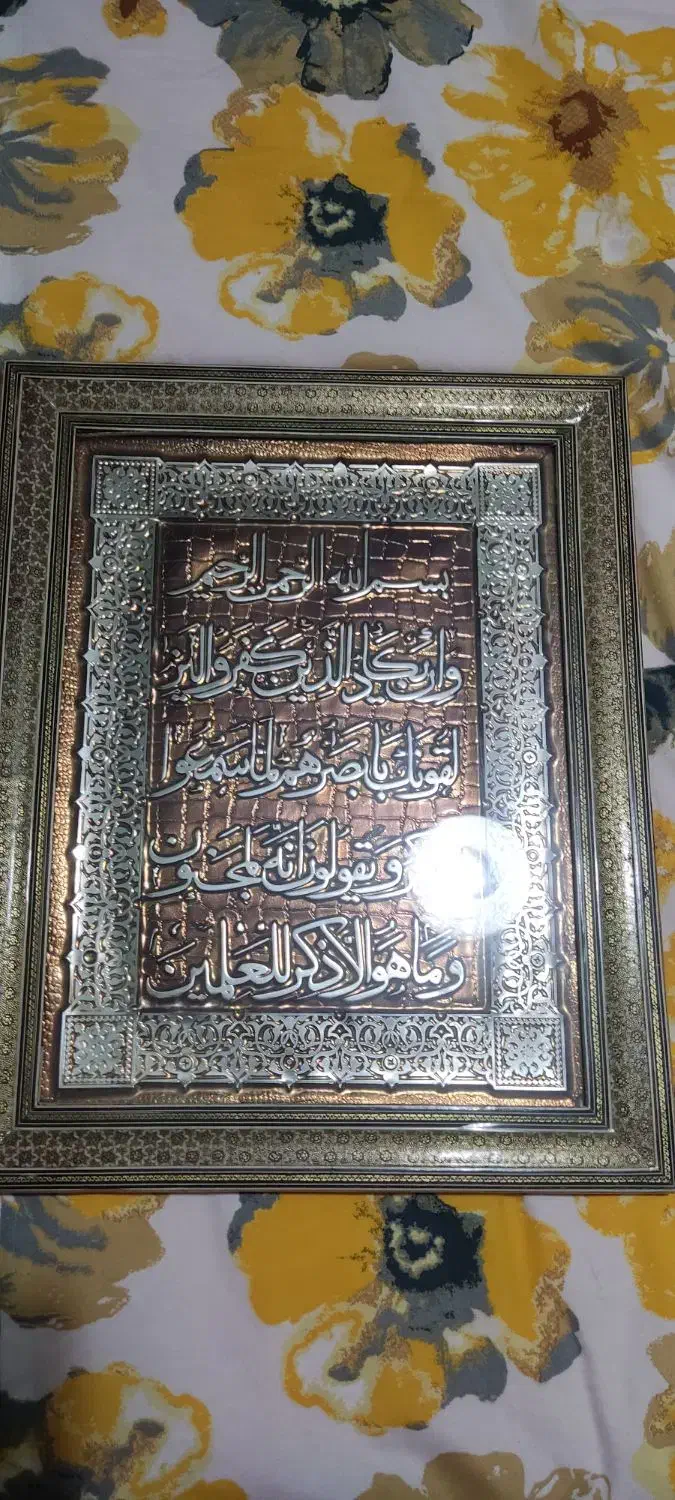 بسم الله الرحمن الرحيم
وَإِن يَكَادُ الَّذِينَ كَفَرُوا لَيُز
لِقُونَكَ بِأَبْصَرِهِمْ لَمَّا سَمِعُوا
وَيَقُولُونَ إِنَّهُ لَمَجْنُونٌ
وَمَا هُوَ إِلَّا ذِكْرٌ لِلْعَلَمِينَ